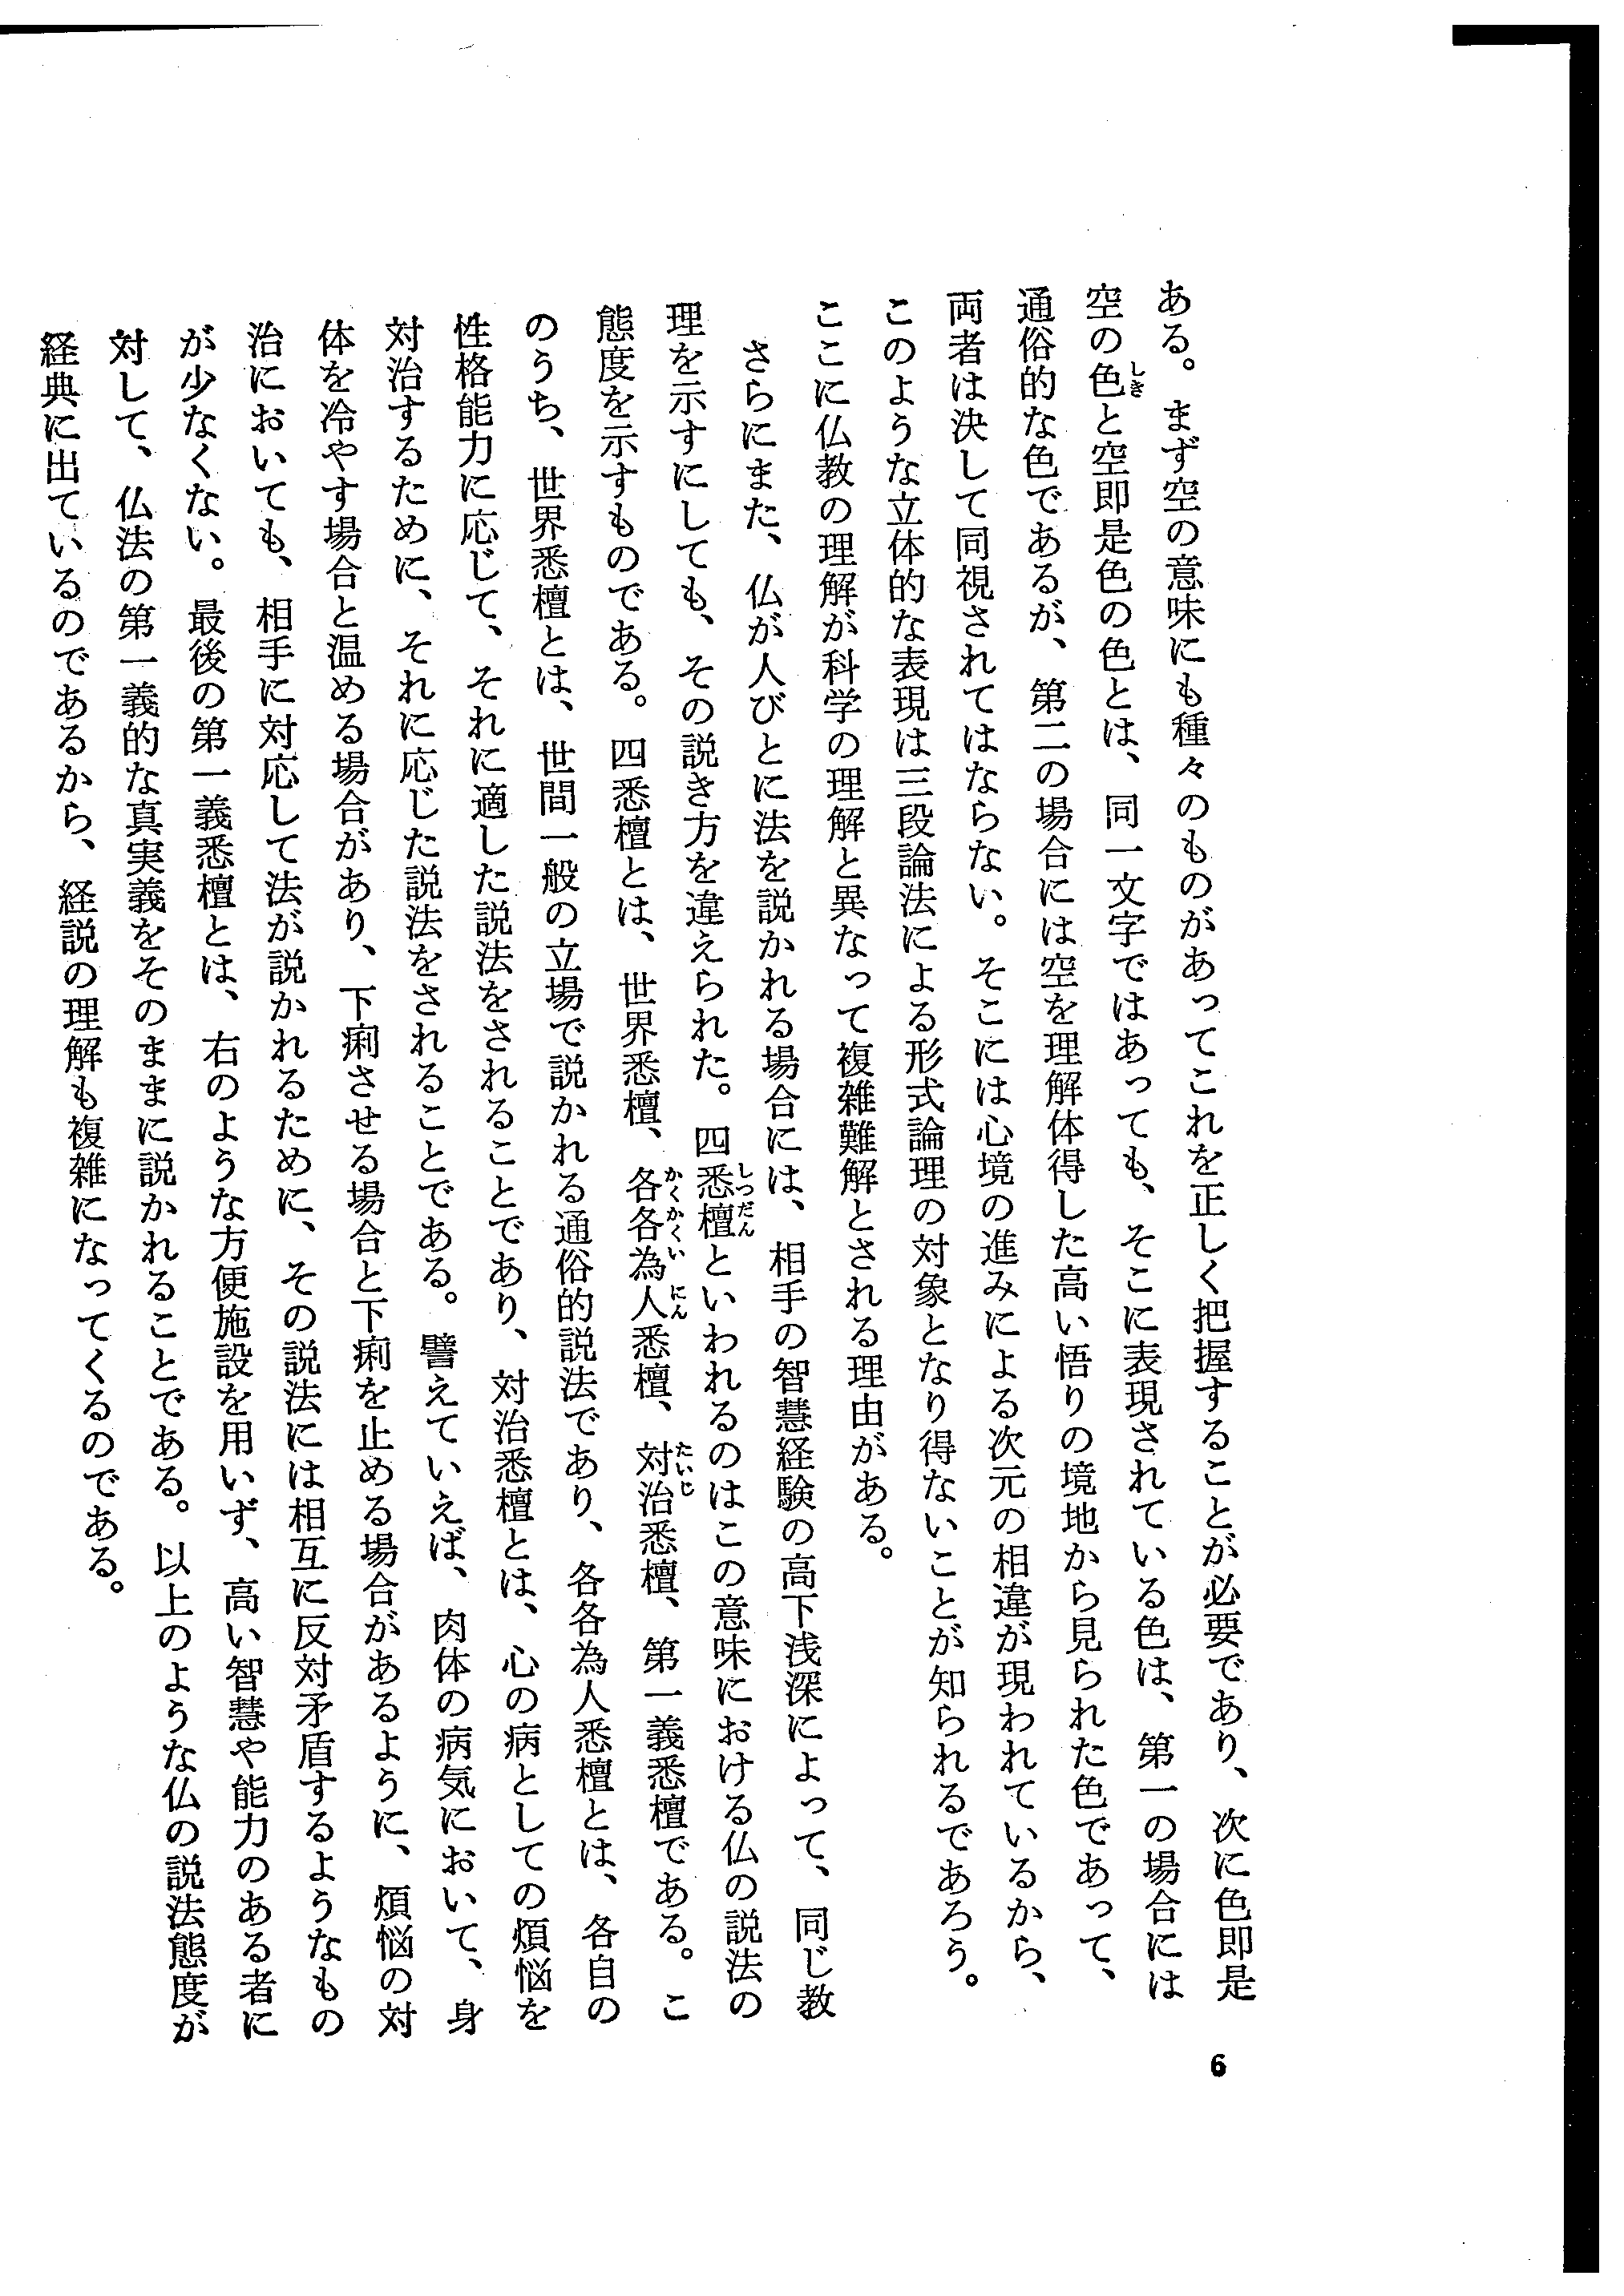 ある。まず空の意味にも種々のものがあってこれを正しく把握することが必要であり、次に色即是
空の色と空即是色の色とは、同一文字ではあっても、そこに表現されている色は、第一の場合には
通俗的な色であるが、第二の場合には空を理解体得した高い悟りの境地から見られた色であって、
両者は決して同視されてはならない。そこには心境の進みによる次元の相違が現われているから、
このような立体的な表現は三段論法による形式論理の対象となり得ないことが知られるであろう。
ここに仏教の理解が科学の理解と異なって複雑難解とされる理由がある。
さらにまた、仏が人びとに法を説かれる場合には、相手の智慧経験の高下浅深によって、同じ教
理を示すにしても、その説き方を違えられた。四悉檀といわれるのはこの意味における仏の説法の
態度を示すものである。四悉檀とは、世界悉檀、各各為人悉檀、対治悉檀、第一義悉檀である。こ
のうち、世界悉檀とは、世間一般の立場で説かれる通俗的説法であり、各各為人悉檀とは、各自の
性格能力に応じて、それに適した説法をされることであり、対治悉檀とは、心の病としての煩悩を
対治するために、それに応じた説法をされることである。譬えていえば、肉体の病気において、身
体を冷やす場合と温める場合があり、下痢させる場合と下痢を止める場合があるように、煩悩の対
治においても、相手に対応して法が説かれるために、その説法には相互に反対矛盾するようなもの
が少なくない。最後の第一義悉檀とは、右のような方便施設を用いず、高い智慧や能力のある者に
対して、仏法の第一義的な真実義をそのままに説かれることである。以上のような仏の説法態度が
経典に出ているのであるから、経説の理解も複雑になってくるのである。
しき
しつだん
かくかくい にん
たいじ
6